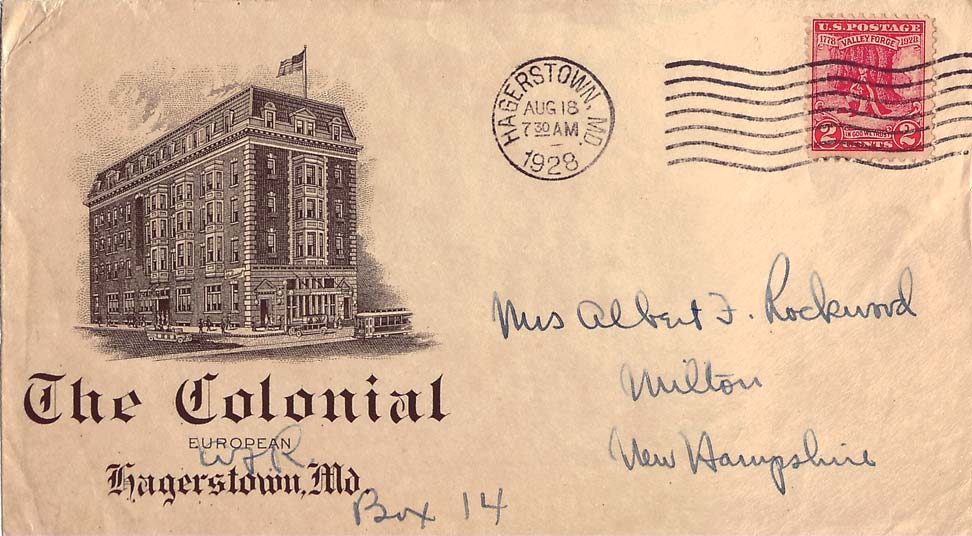 U.S. POSTAGE
1778 VALLEY FORGE 1928
IN GOD WE TRUST
2 CENTS 2
HAGERSTOWN, MD.
AUG 18
7 30 AM
1928
Mrs Albert F. Rockwood
Milton
New Hampshire
The Colonial
EUROPEAN
Hagerstown, Md.
Box 14